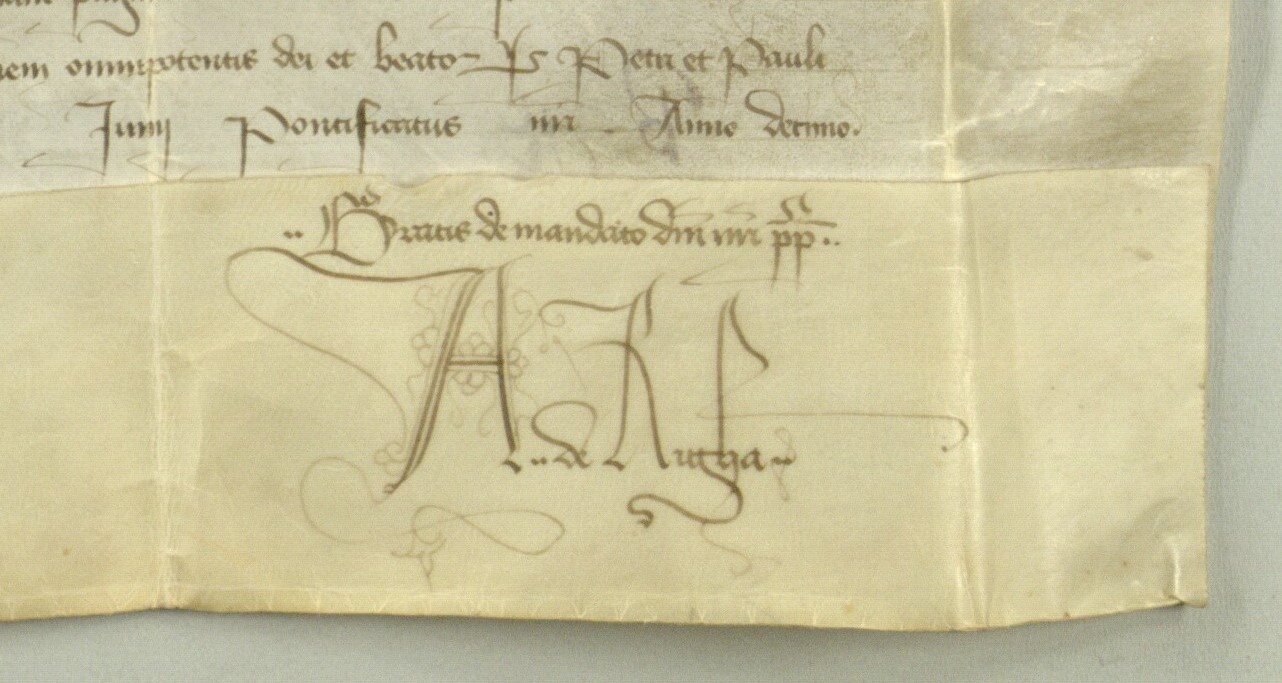 omnipotentis dei et beato⁊ Petri et Pauli
Junij Pontificatus nrī Anno decimo.
.. Gratis de mandato dm̄ nrī pp̄ ..
A.. de